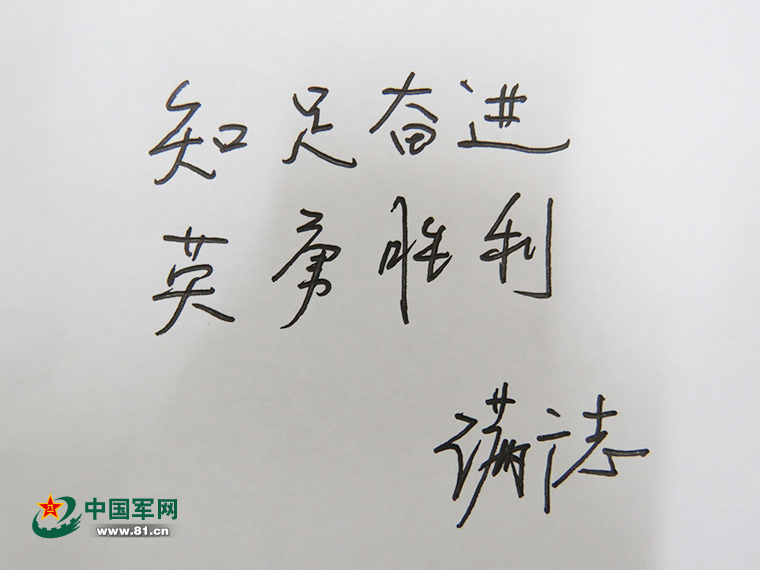 知足奋进
英勇胜利
满志
中国军网
www.81.cn